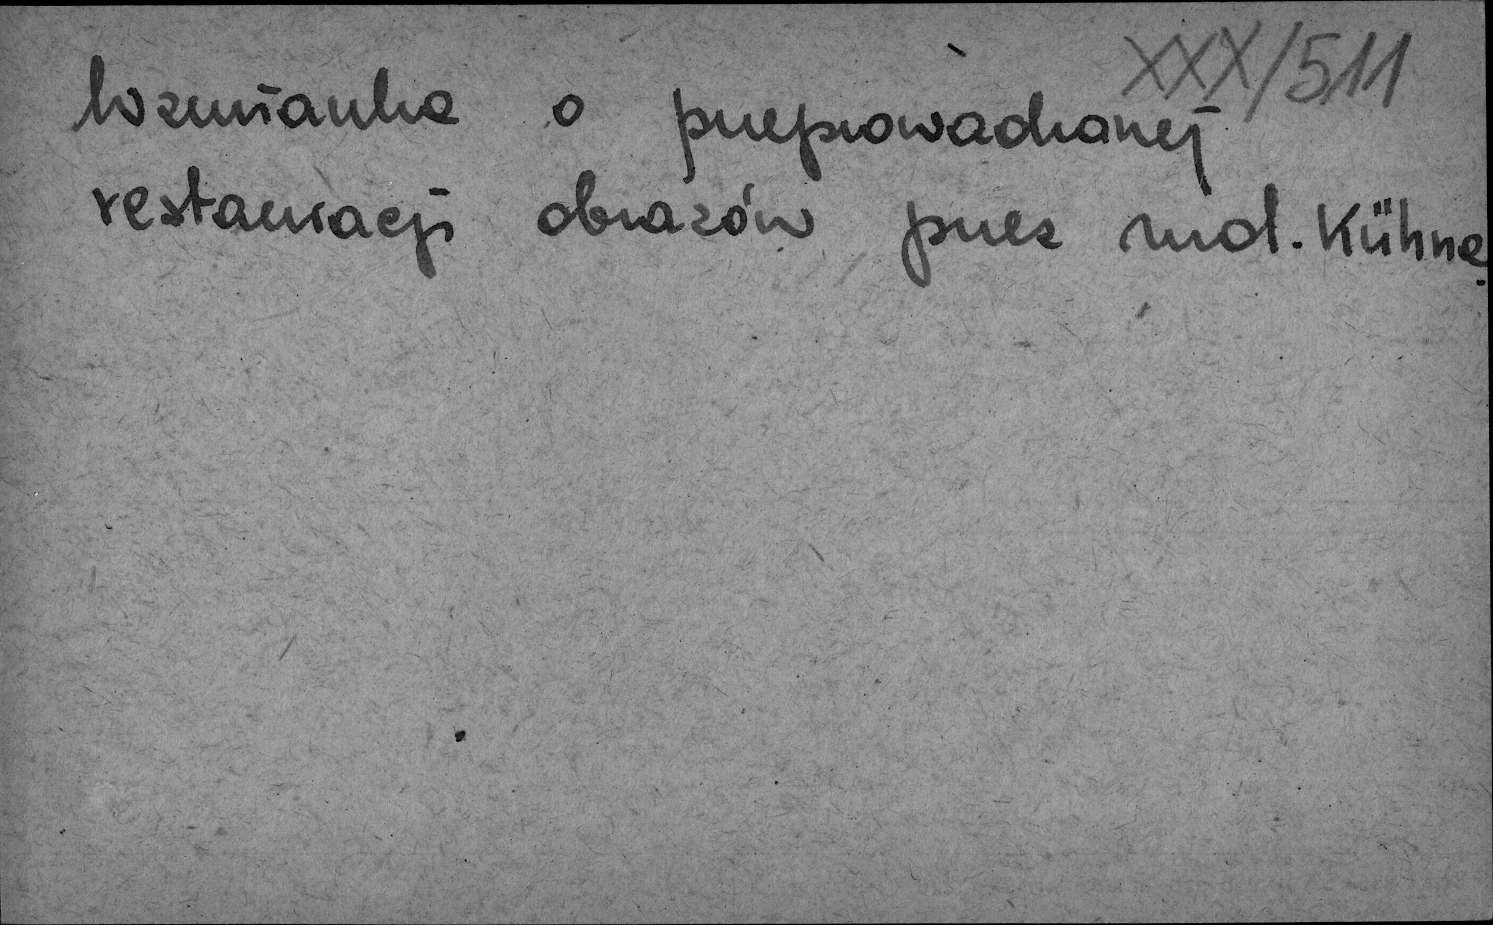 XXX/511
Wzmianka o przeprowadzanej
restauracji obrazów przez mal. Kühne